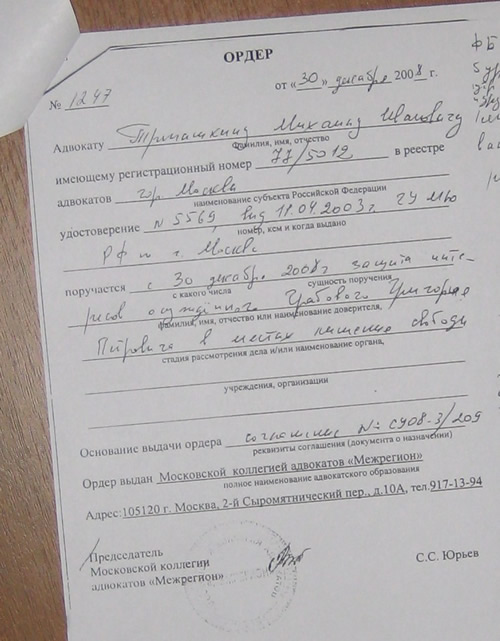 ОРДЕР
от «30» декабря 2008 г.
№ 1247
Адвокату Трепашкину Михаилу Ивановичу
фамилия, имя, отчество
имеющему регистрационный номер 77/5012 в реестре
адвокатов гор. Москва
наименование субъекта Российской Федерации
удостоверение N 5569, выд 11.04.2003г. ГУ МЮ
номер, кем и когда выдано
РФ по г. Москве
поручается с 30 декабря 2008г защита инте-
с какого числа сущность поручения
ресов осужденного Грабового Григория
фамилия, имя, отчество или наименование доверителя,
Петровича в местах лишения свободы
стадия рассмотрения дела и/или наименование органа,
учреждения, организации
Основание выдачи ордера соглашение N= С908-3/209
реквизиты соглашения (документа о назначении)
Ордер выдан Московской коллегией адвокатов «Межрегион»
полное наименование адвокатского образования
Адрес:105120 г. Москва, 2-й Сыромятнический пер., д.10А, тел.917-13-94
Председатель
Московской коллегии
адвокатов «Межрегион» С.С. Юрьев